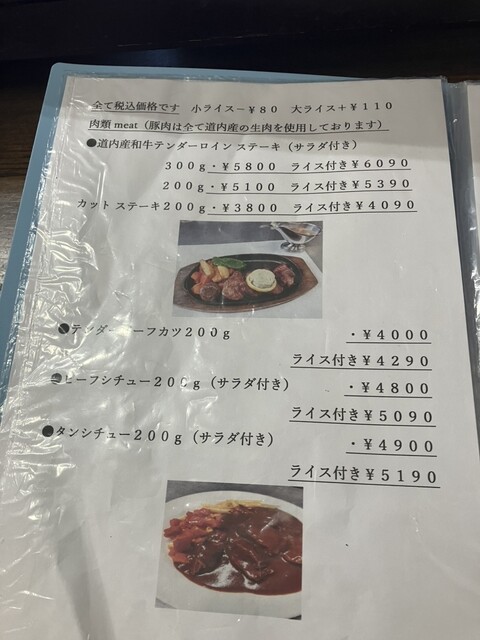 全て税込価格です 小ライス－￥８０ 大ライス＋￥１１０
肉類 meat（豚肉は全て道内産の生肉を使用しております）
●道内産和牛テンダーロイン ステーキ（サラダ付き）
３００ｇ・￥５８００ ライス付き￥６０９０
２００ｇ・￥５１００ ライス付き￥５３９０
カット ステーキ２００ｇ・￥３８００ ライス付き￥４０９０
●テンダービーフカツ２００ｇ ・￥４０００
ライス付き￥４２９０
●ビーフシチュー２００ｇ（サラダ付き） ・￥４８００
ライス付き￥５０９０
●タンシチュー２００ｇ（サラダ付き） ・￥４９００
ライス付き￥５１９０